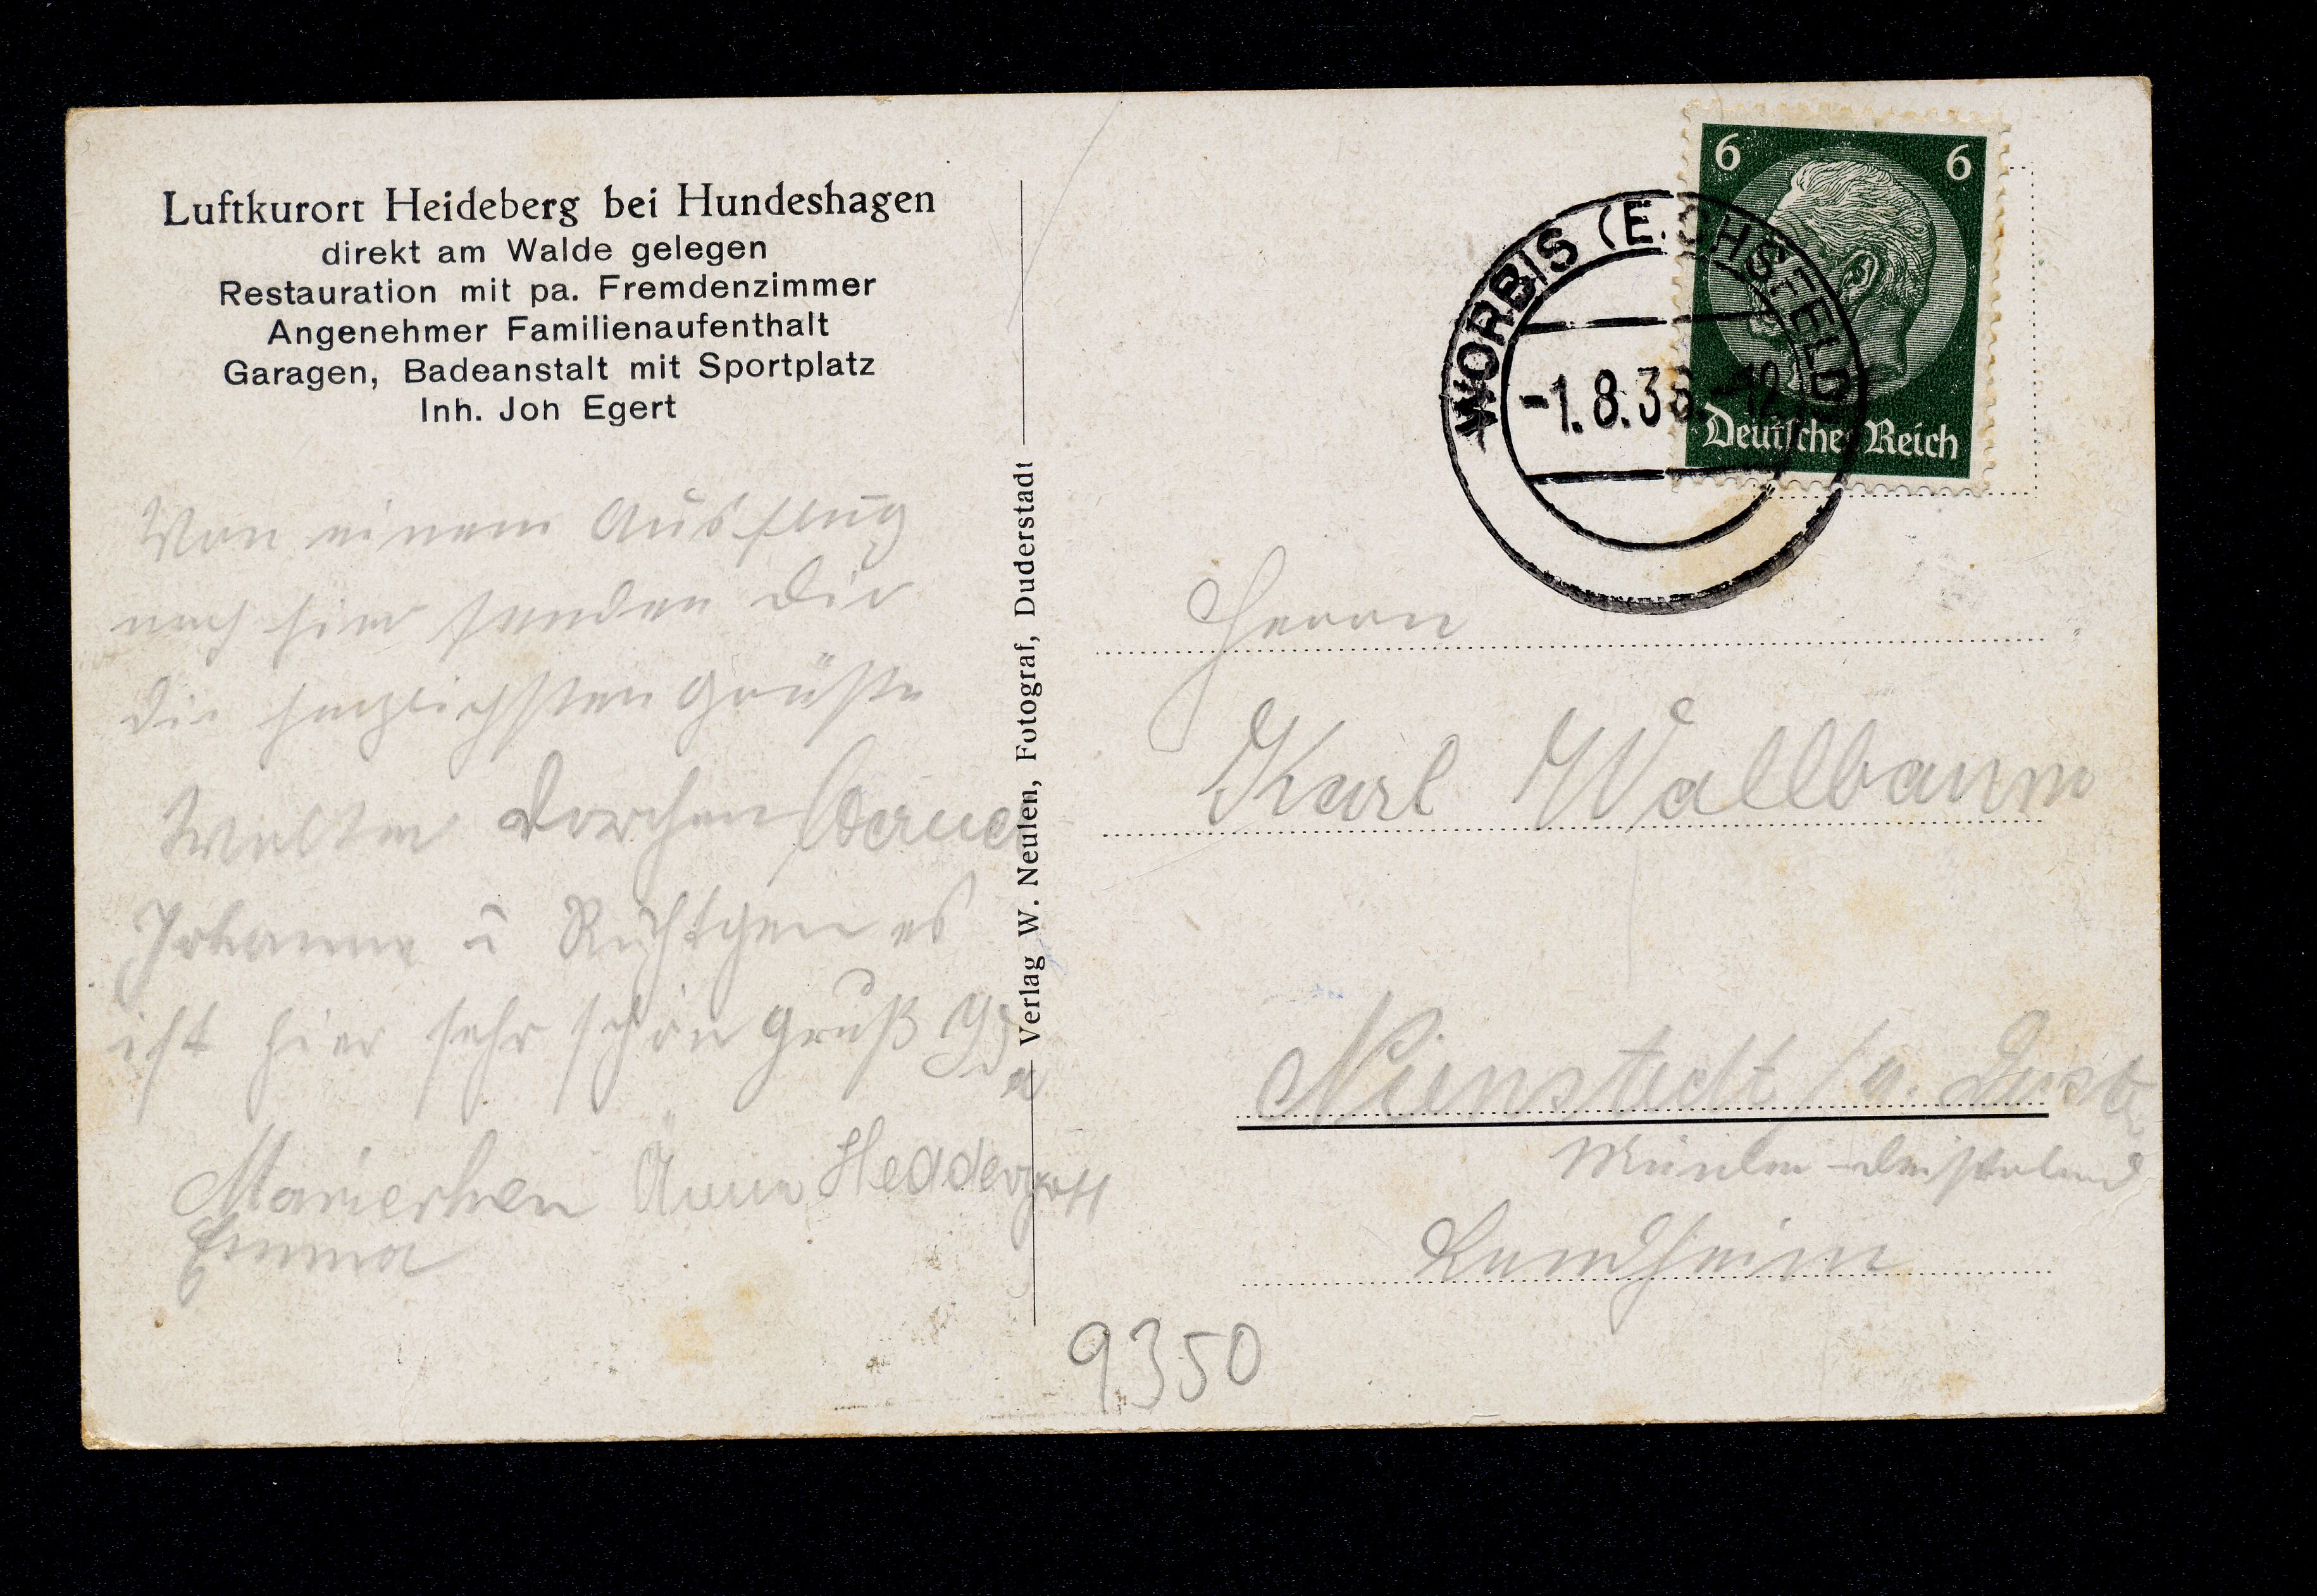 Luftkurort Heideberg bei Hundeshagen
direkt am Walde gelegen
Restauration mit pa. Fremdenzimmer
Angenehmer Familienaufenthalt
Garagen, Badeanstalt mit Sportplatz
Inh. Joh Egert
Von einem Ausflug
nach hier senden Dir
die herzlichsten Grüße
Walter Dorchen
Johanna u es
ist hier sehr schön Gruß Ida
Mariechen Änne Heddergott
Emma
Verlag W. Neulen, Fotograf, Duderstadt
6 6
Deutsches Reich
WORBIS (EICHSFELD)
-1.8.38.-12
Herrn
Karl Wallbaum
Nienstedt /a. Deister
Münder
Landheim
9350